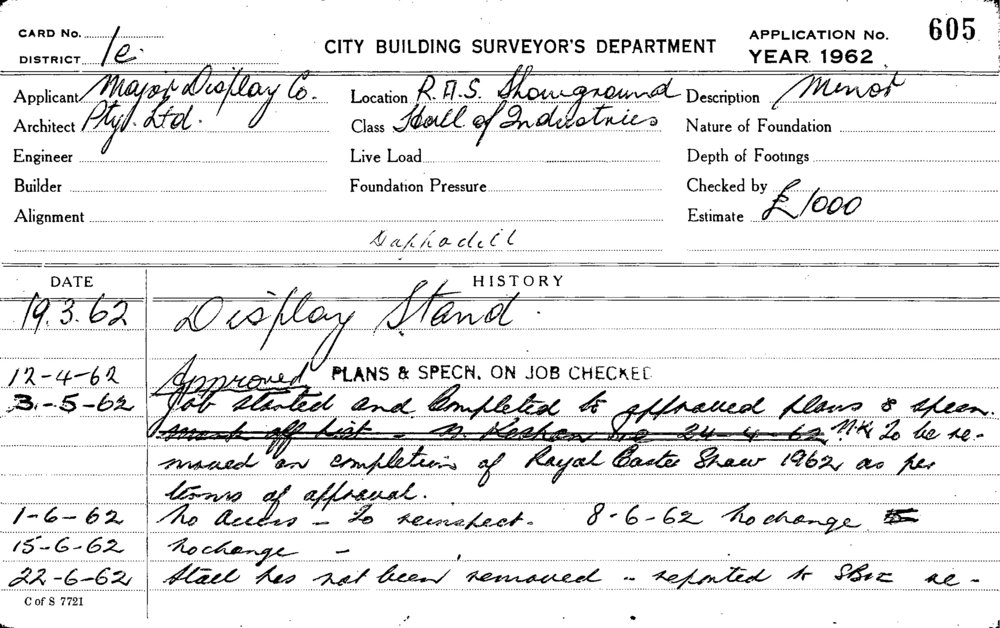 CARD No.
DISTRICT 1e.
CITY BUILDING SURVEYOR'S DEPARTMENT
APPLICATION No. 605
YEAR 1962
Applicant Major Display Co.
Location R.A.S. Showground
Description Minor
Architect Pty. Ltd.
Class Hall of Industries
Nature of Foundation
Engineer
Live Load
Depth of Footings
Builder
Foundation Pressure
Checked by
Alignment
Estimate £1000
DATE
HISTORY
19.3.62 Display Stand.
12-4-62 Approved PLANS & SPECN. ON JOB CHECKED
3-5-62 Job started and Completed to approved plans & specn.
mark off list - N. 24-4-62 N.K. To be re-
moved on completion of Royal Easter Show 1962 as per
terms of approval.
1-6-62 No access - To reinspect. 8-6-62 No change
15-6-62 No change -
22-6-62 Stall has not been removed - reported to re-
C of S 7721